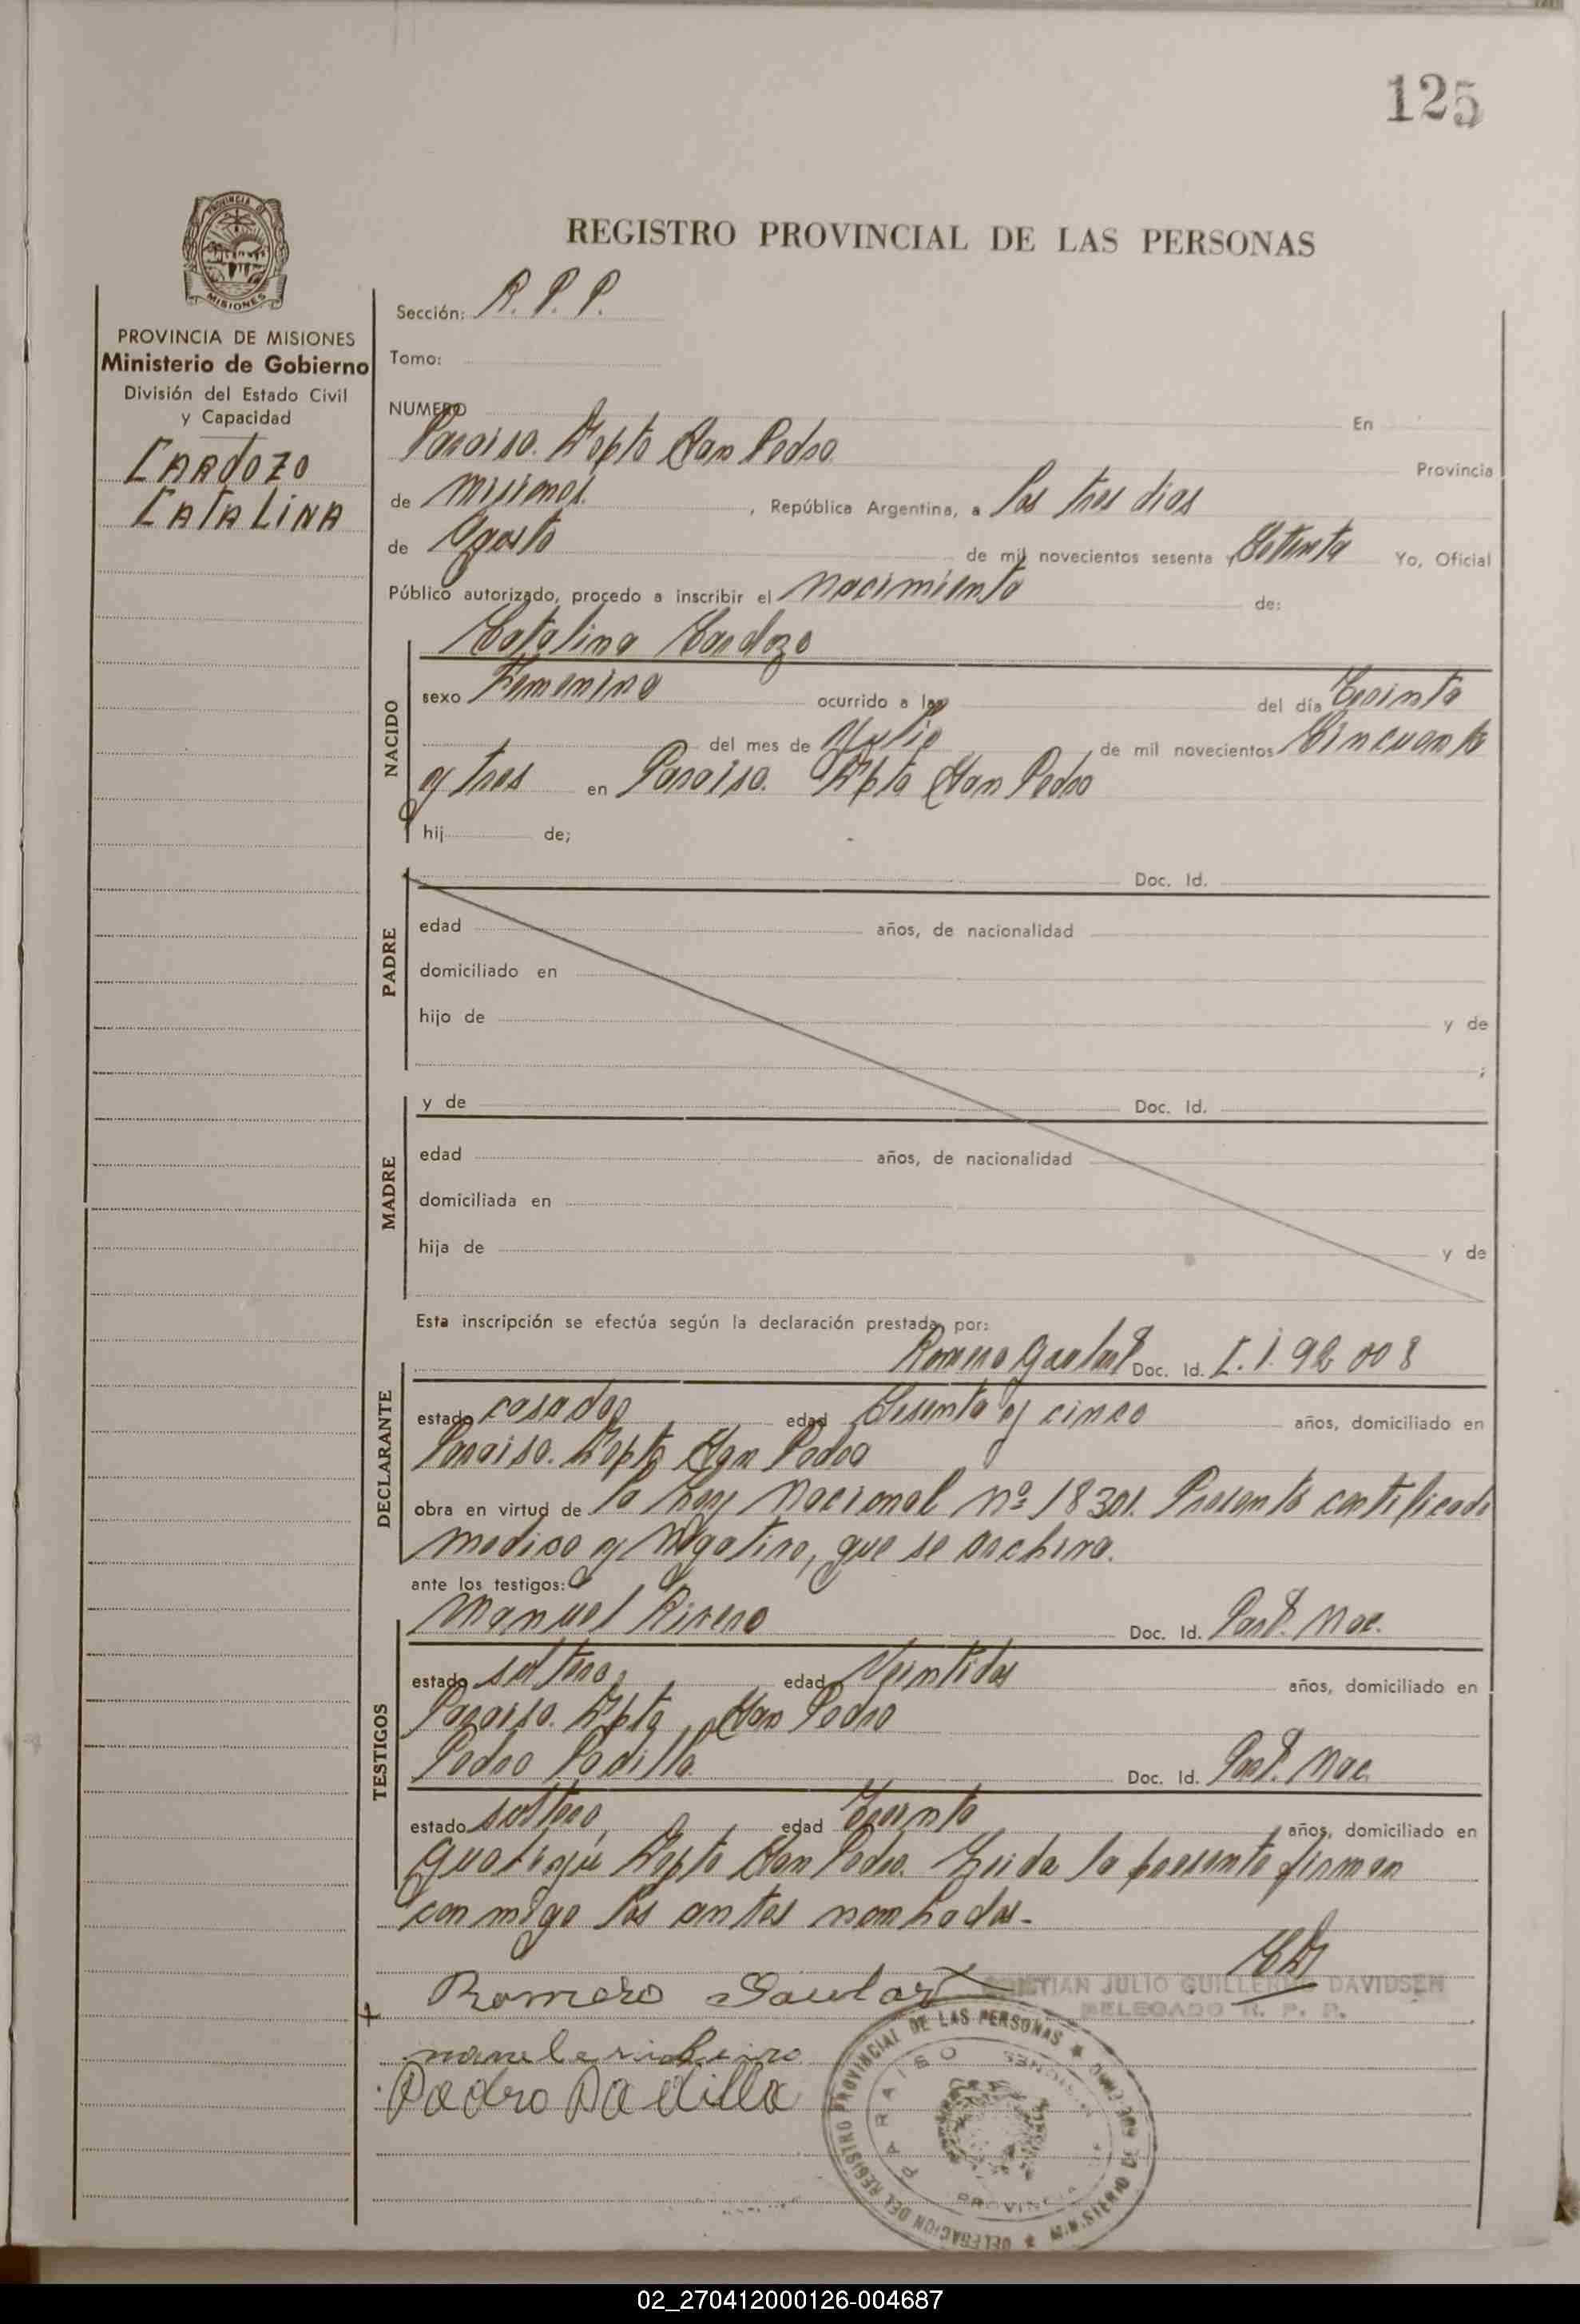 125
PROVINCIA DE MISIONES
REGISTRO PROVINCIAL DE LAS PERSONAS
PROVINCIA DE MISIONES
Ministerio de Gobierno
División del Estado Civil
y Capacidad
CARDOZO
CATALINA
Sección: R. P. P.
Tomo:
NUMERO En
Paraiso. Depto San Pedro Provincia
de Misiones , República Argentina, a los tres dias
de Agosto de mil novecientos sesenta y Setenta Yo, Oficial
Público autorizado, procedo a inscribir el Nacimiento de:
Catalina Cardozo
NACIDO
sexo Femenino ocurrido a las del día Treinta
del mes de Julio de mil novecientos Cincuenta
y tres en Paraiso. Dpto San Pedro
hij de;
PADRE
Doc. Id.
edad años, de nacionalidad
domiciliado en
hijo de y de
;
MADRE
y de Doc. Id.
edad años, de nacionalidad
domiciliada en
hija de y de
Esta inscripción se efectúa según la declaración prestada, por:
DECLARANTE
Romero Doc. Id. C.I. 92 008
estado casado edad Sesenta y cinco años, domiciliado en
Paraiso. Depto San Pedro
obra en virtud de la Ley Nacional nº 18301. Presento certificado
medico y Negativo, que se archiva.
ante los testigos:
TESTIGOS
Manuel Rivero Doc. Id. Part. Nac.
estado soltero, edad Veintidos años, domiciliado en
Paraiso. Dpto San Pedro
Pedro Padilla Doc. Id. Part. Nac.
estado soltero, edad Treinta años, domiciliado en
Depto San Pedro. Leida la presente firman
con migo los antes nombrados.
Romero Saular
CRISTIAN JULIO GUILLERMO DAVIDSEN
DELEGADO R. P. P.
Pedro Padilla
DELEGACION DEL REGISTRO PROVINCIAL DE LAS PERSONAS
PARAISO
MISIONES
PROVINCIA
02_270412000126-004687